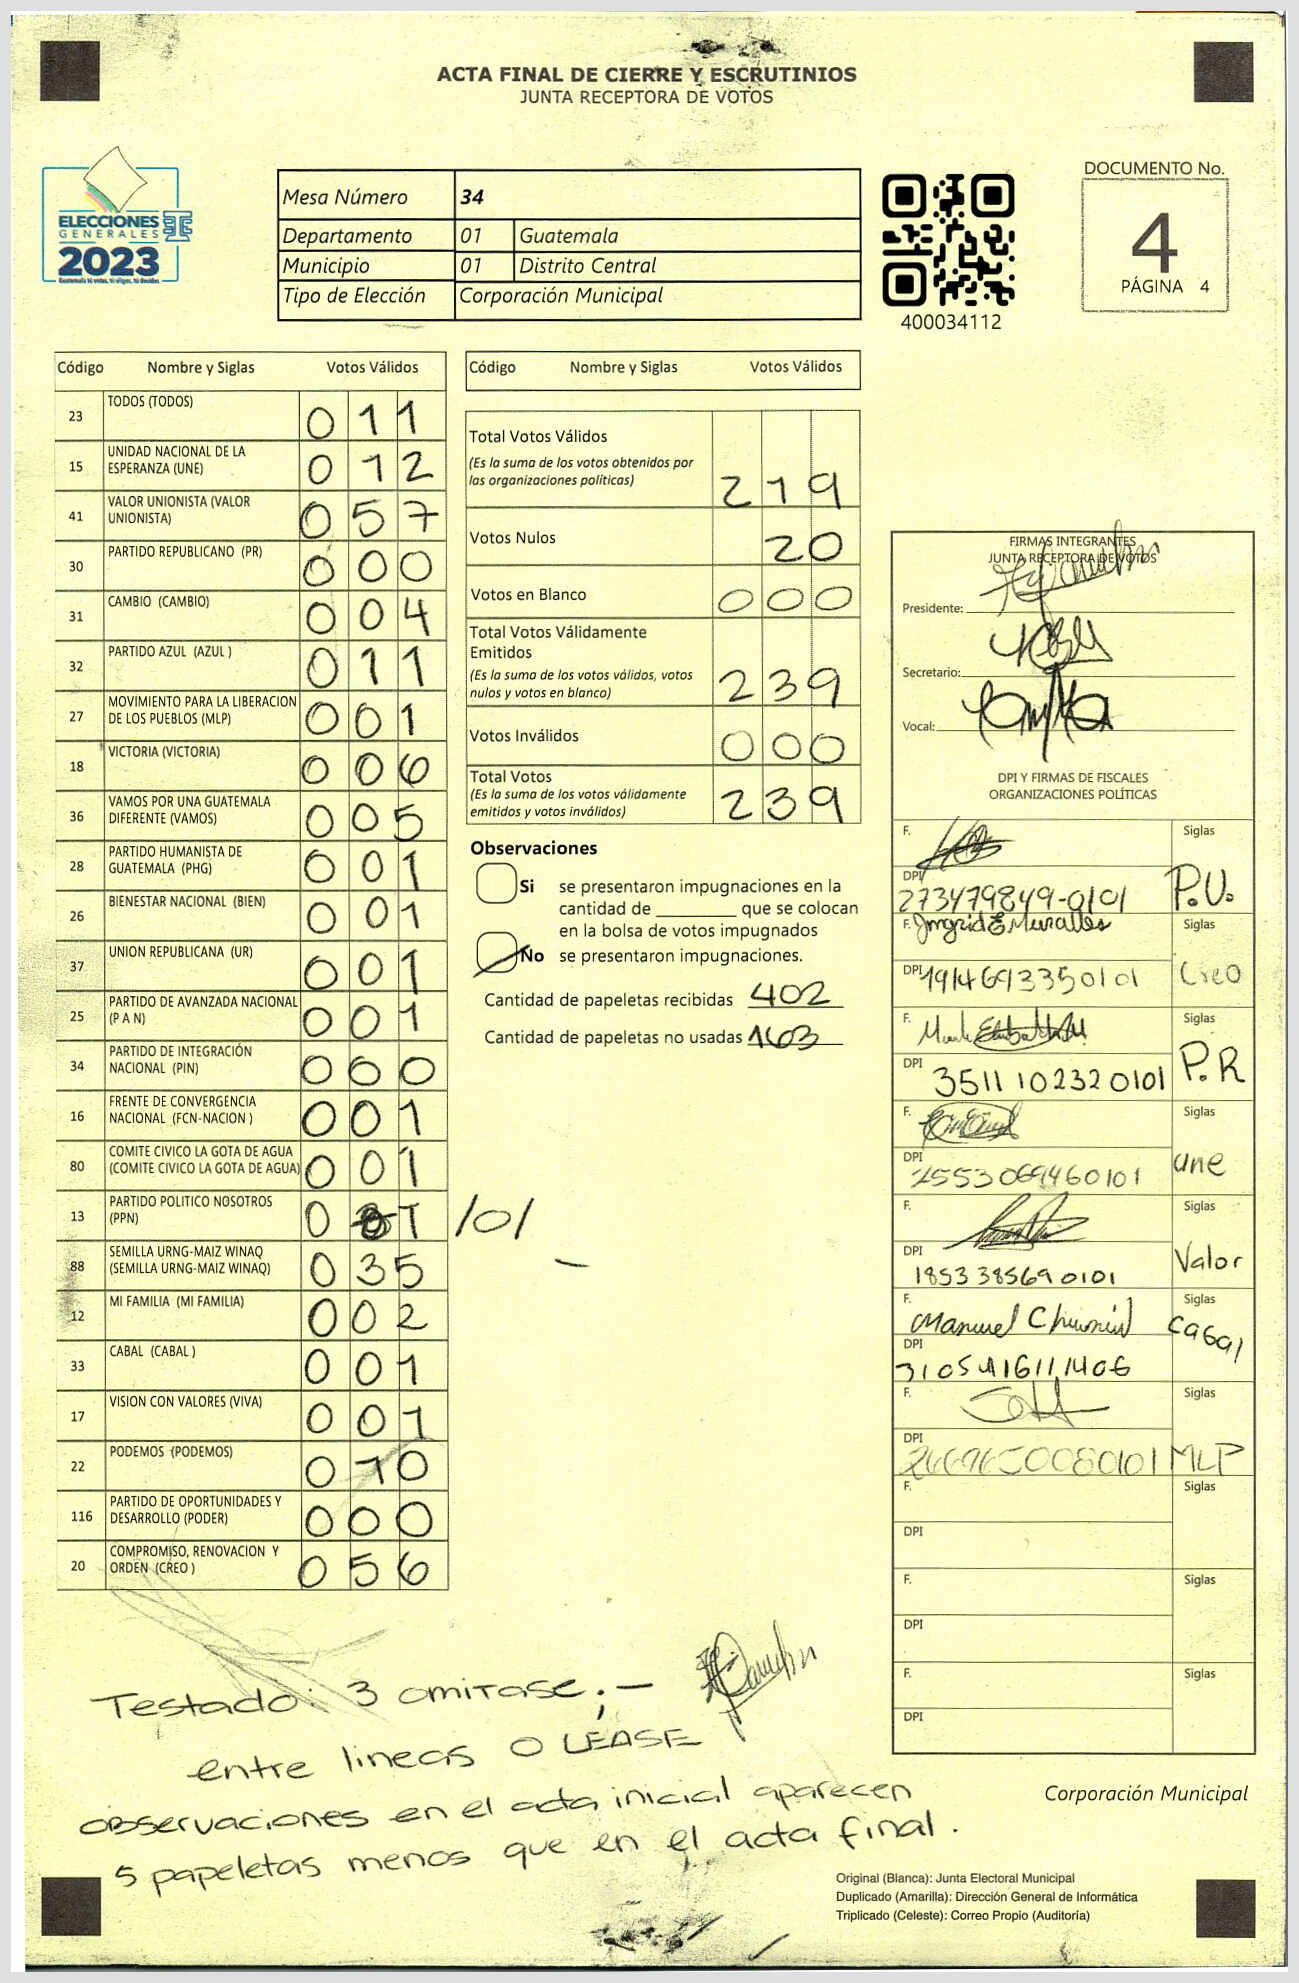 ACTA FINAL DE CIERRE Y ESCRUTINIOS
JUNTA RECEPTORA DE VOTOS
ELECCIONES
GENERALES
2023
Mesa Número 34
Departamento 01 Guatemala
Municipio 01 Distrito Central
Tipo de Elección Corporación Municipal
400034112
DOCUMENTO No.
4
PÁGINA 4
Código Nombre y Siglas Votos Válidos
23 TODOS (TODOS) 0 1 1
15 UNIDAD NACIONAL DE LA
ESPERANZA (UNE) 0 1 2
41 VALOR UNIONISTA (VALOR
UNIONISTA) 0 5 7
30 PARTIDO REPUBLICANO (PR) 0 0 0
31 CAMBIO (CAMBIO) 0 0 4
32 PARTIDO AZUL (AZUL ) 0 1 1
27 MOVIMIENTO PARA LA LIBERACION
DE LOS PUEBLOS (MLP) 0 0 1
18 VICTORIA (VICTORIA) 0 0 6
36 VAMOS POR UNA GUATEMALA
DIFERENTE (VAMOS) 0 0 5
28 PARTIDO HUMANISTA DE
GUATEMALA (PHG) 0 0 1
26 BIENESTAR NACIONAL (BIEN) 0 0 1
37 UNION REPUBLICANA (UR) 0 0 1
25 PARTIDO DE AVANZADA NACIONAL
(P A N) 0 0 1
34 PARTIDO DE INTEGRACIÓN
NACIONAL (PIN) 0 0 0
16 FRENTE DE CONVERGENCIA
NACIONAL (FCN-NACION ) 0 0 1
80 COMITE CIVICO LA GOTA DE AGUA
(COMITE CIVICO LA GOTA DE AGUA) 0 0 1
13 PARTIDO POLITICO NOSOTROS
(PPN) 0 1 /0/
88 SEMILLA URNG-MAIZ WINAQ
(SEMILLA URNG-MAIZ WINAQ) 0 3 5
12 MI FAMILIA (MI FAMILIA) 0 0 2
33 CABAL (CABAL ) 0 0 1
17 VISION CON VALORES (VIVA) 0 0 1
22 PODEMOS (PODEMOS) 0 1 0
116 PARTIDO DE OPORTUNIDADES Y
DESARROLLO (PODER) 0 0 0
20 COMPROMISO, RENOVACION Y
ORDEN (CREO ) 0 5 6
Código Nombre y Siglas Votos Válidos
Total Votos Válidos
(Es la suma de los votos obtenidos por
las organizaciones políticas) 2 1 9
Votos Nulos 20
Votos en Blanco 0 0 0
Total Votos Válidamente
Emitidos
(Es la suma de los votos válidos, votos
nulos y votos en blanco) 2 3 9
Votos Inválidos 0 0 0
Total Votos
(Es la suma de los votos válidamente
emitidos y votos inválidos) 2 3 9
Observaciones
Si se presentaron impugnaciones en la
cantidad de ________ que se colocan
en la bolsa de votos impugnados
No se presentaron impugnaciones.
Cantidad de papeletas recibidas 402
Cantidad de papeletas no usadas 163
FIRMAS INTEGRANTES
JUNTA RECEPTORA DE VOTOS
Presidente:
Secretario:
Vocal:
DPI Y FIRMAS DE FISCALES
ORGANIZACIONES POLÍTICAS
F. Siglas
DPI 273479849-0101 P.U.
F. Jngrid E Muralles Siglas
DPI 1914693350101 Creo
F. Siglas
DPI 3511 102320101 P.R
F. Siglas
DPI 2553069460101 une
F. Siglas
DPI 1853385690101 Valor
F. Manuel Siglas
DPI Cabal
F. Siglas
DPI MLP
F. Siglas
DPI
F. Siglas
DPI
F. Siglas
DPI
Testado: 3 omitase; —
entre lineas 0 LEASE
observaciones en el acta inicial aparecen
5 papeletas menos que en el acta final.
Corporación Municipal
Original (Blanca): Junta Electoral Municipal
Duplicado (Amarilla): Dirección General de Informática
Triplicado (Celeste): Correo Propio (Auditoría)